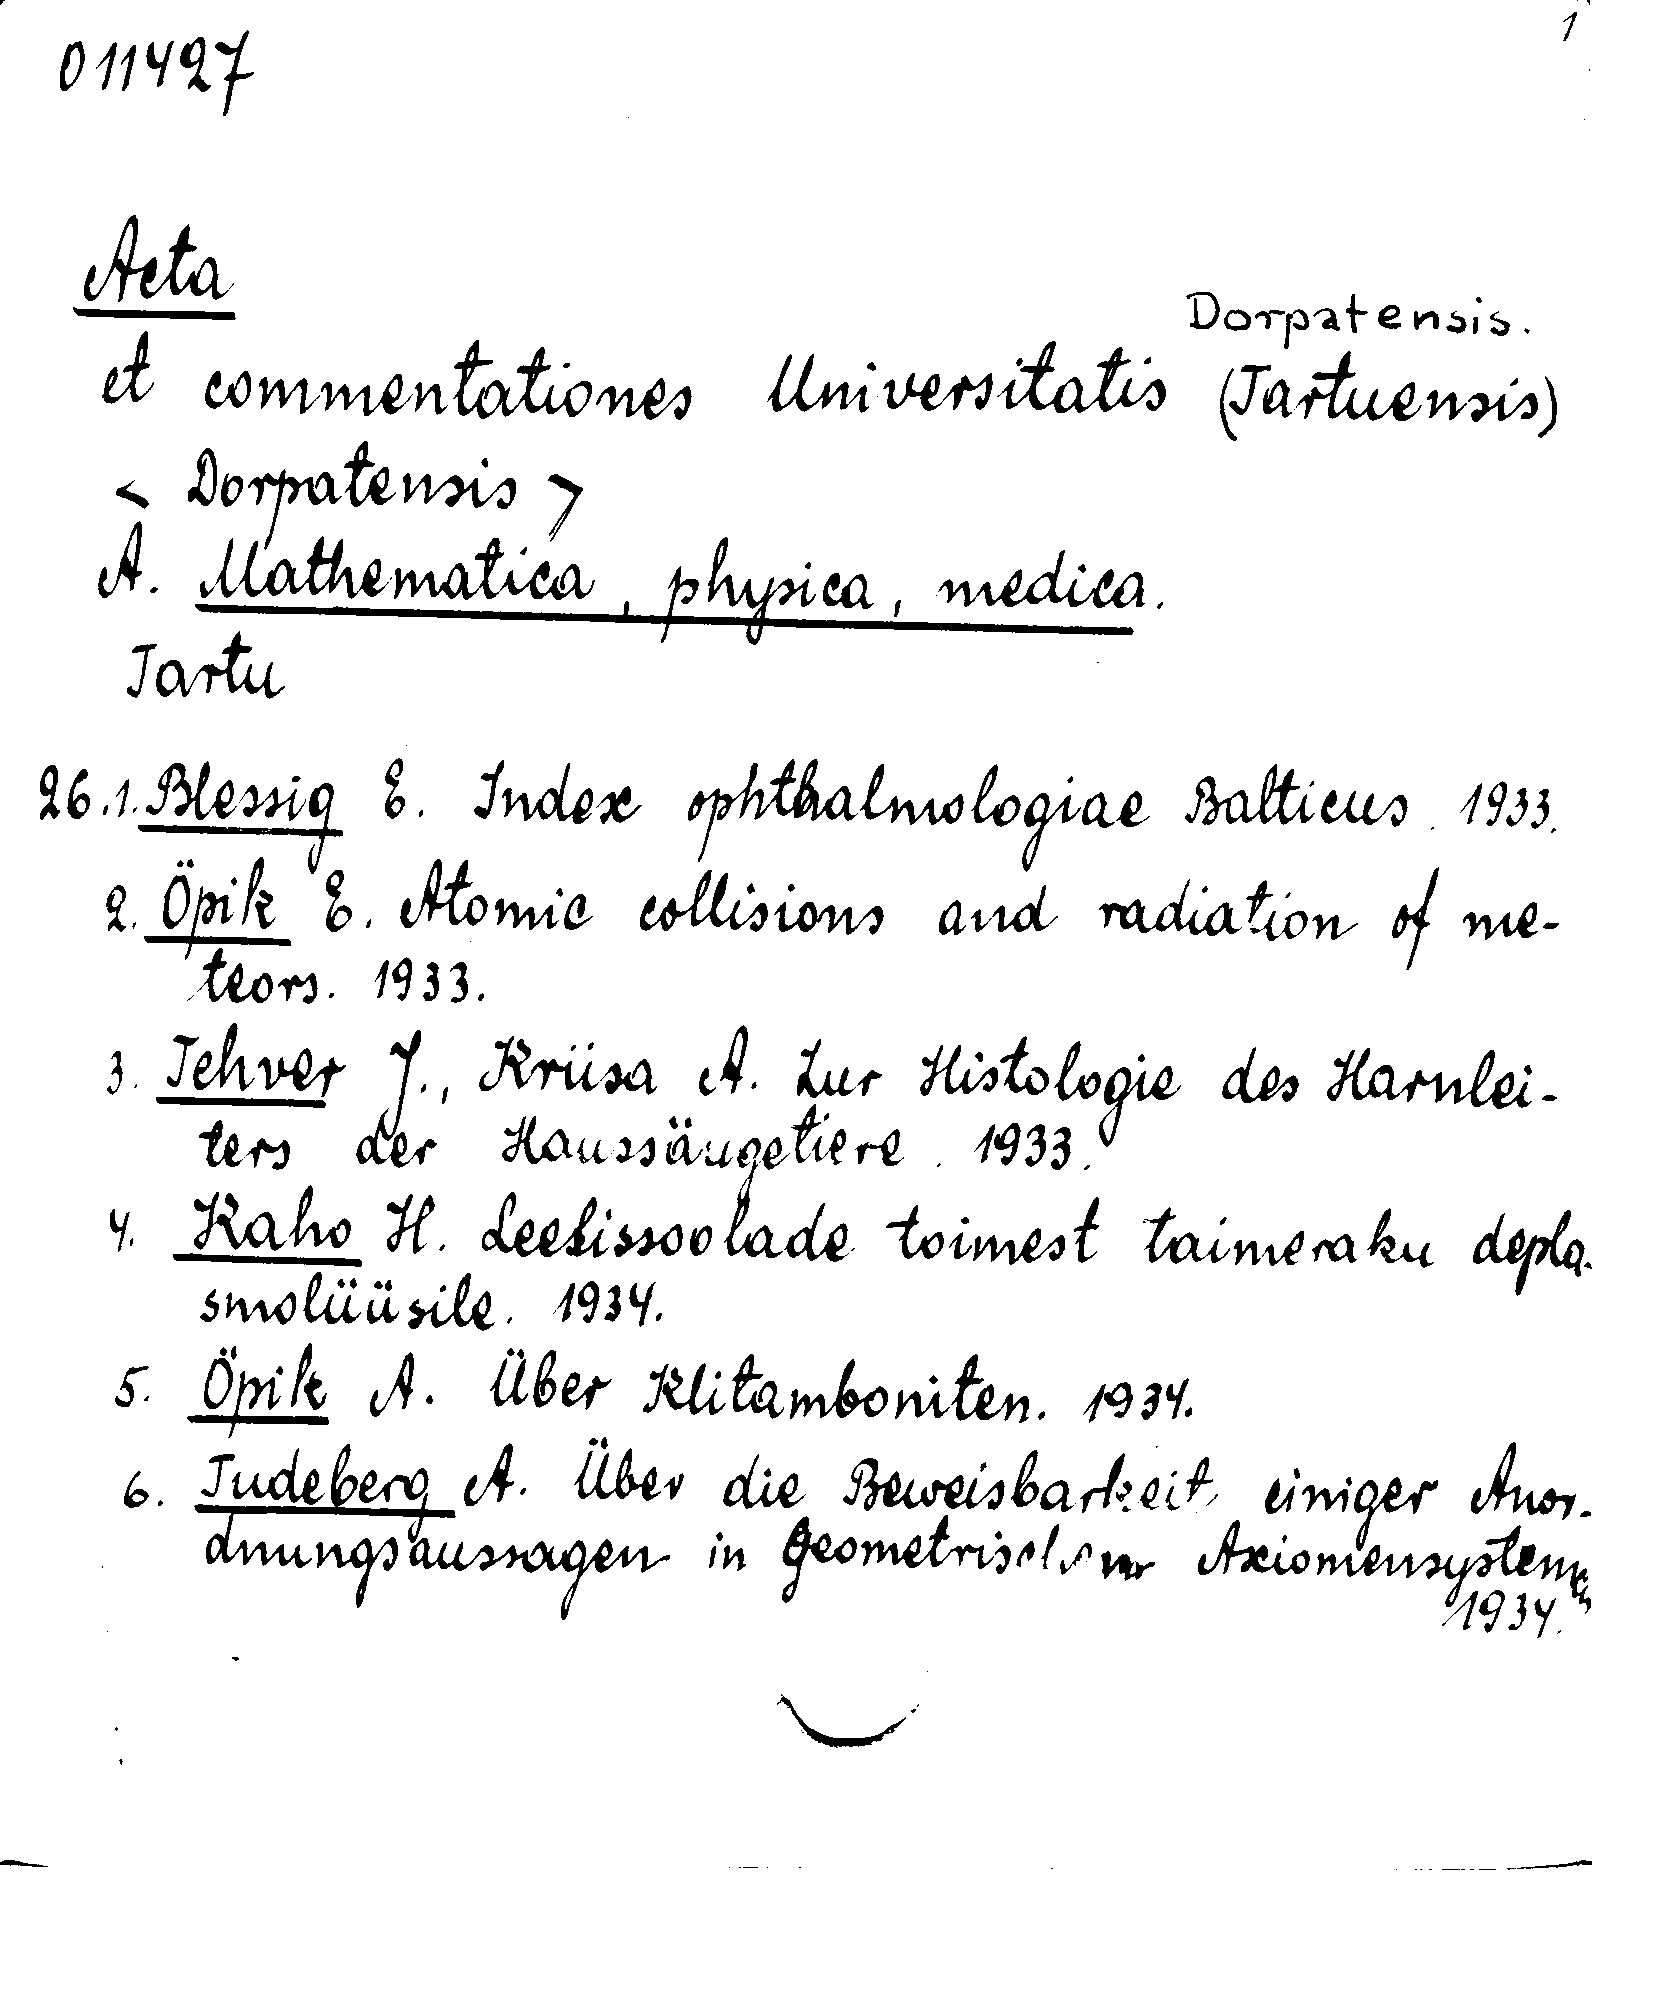 1
011427
Acta
Dorpatensis.
et commentationes Universitatis (Tartuensis)
< Dorpatensis >
A. Mathematica, physica, medica.
Tartu
26.1. Blessig E. Index ophthalmologiae Balticus. 1933.
2. Öpik E. Atomic collisions and radiation of me-
teors. 1933.
3. Tehver J., Kriisa A. Zur Histologie des Harnlei-
ters der Haussäugetiere. 1933.
4. Kaho H. Leelissoolade toimest taimeraku depla-
smolüüsile. 1934.
5. Öpik A. Über Klitamboniten. 1934.
6. Tudeberg A. Über die Beweisbarkeit einiger Anor-
dnungsaussagen in Geometrischen Axiomensystemen
1934.